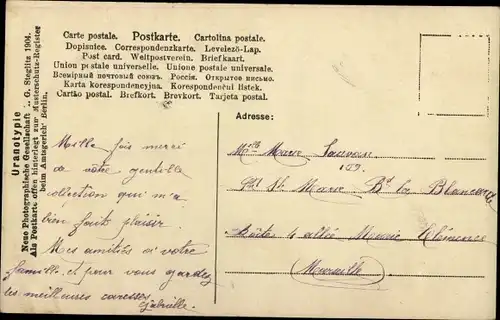 Uranotypie
Neue Photographische Gesellschaft A. G. Steglitz 1904.
Als Postkarte offen hinterlegt zur Musterschutz-Register
beim Amtsgericht Berlin.
Carte postale. Postkarte. Cartolina postale.
Dopisnice. Correspondenzkarte. Levelező-Lap.
Post card. Weltpostverein. Briefkaart.
Union postale universelle. Unione postale universale.
Всемірный почтовый союзъ. Россія. Открытое письмо.
Karta korespondencyjna. Korespondenčni listek.
Cartão postal. Brefkort. Brevkort. Tarjeta postal.
Mille fois merci
de vôtre gentille
collection qui m'a
bien fait plaisir.
Mes amitiés à votre
famille et pour vous gardez
les meilleures caresses
Gabrielle.
Adresse:
Marie Sauvan
159.
St. Marie Bd la Blancarde
4 allée Marie Clémence
Marseille